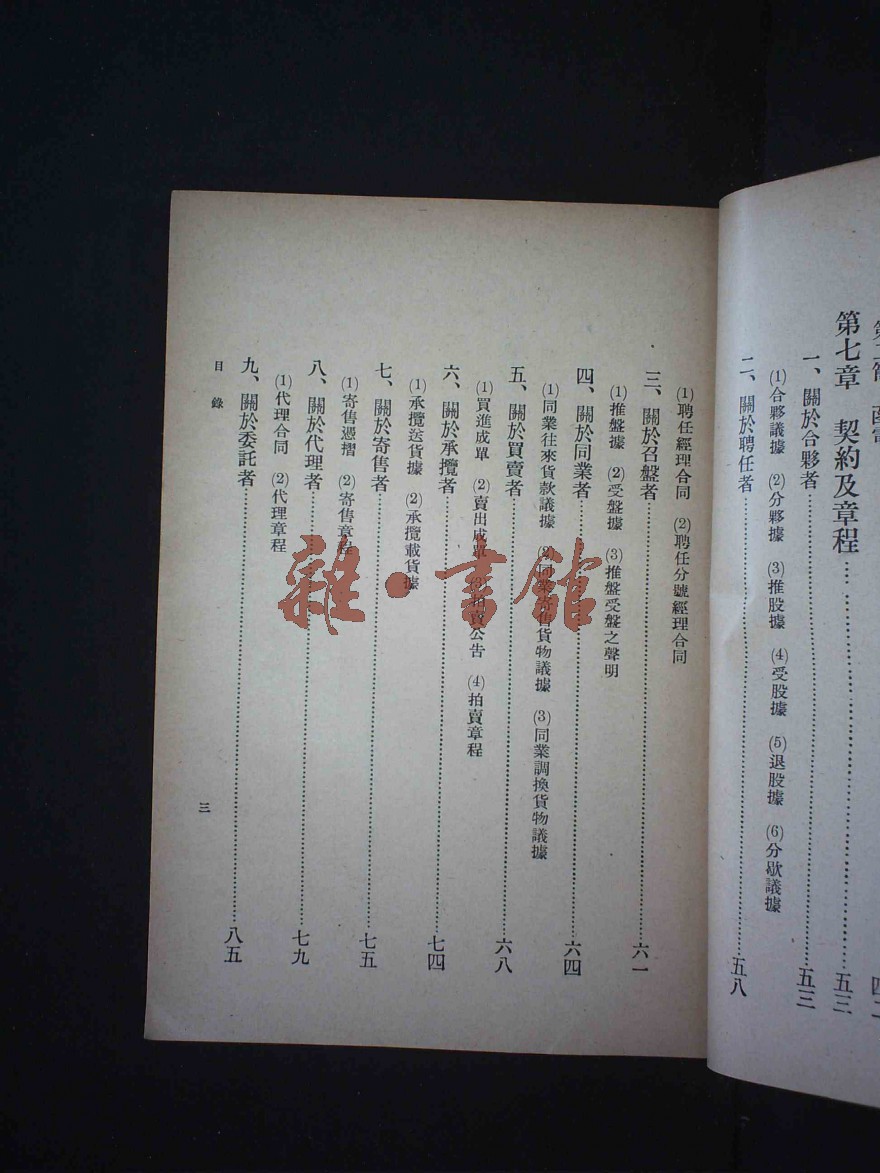 四二
第七章 契約及章程…………五三
一、關於合夥者…………五三
(1)合夥議據 (2)分夥據 (3)推股據 (4)受股據 (5)退股據 (6)分歇議據
二、關於聘任者…………五八
(1)聘任經理合同 (2)聘任分號經理合同
三、關於召盤者…………六一
(1)推盤據 (2)受盤據 (3)推盤受盤之聲明
四、關於同業者…………六四
(1)同業往來貨款議據 (2)同業寄售貨物議據 (3)同業調換貨物議據
五、關於買賣者…………六八
(1)買進成單 (2)賣出成單 (3)拍賣公告 (4)拍賣章程
六、關於承攬者…………七四
(1)承攬送貨據 (2)承攬載貨據
七、關於寄售者…………七五
(1)寄售憑摺 (2)寄售章程
八、關於代理者…………七九
(1)代理合同 (2)代理章程
九、關於委託者…………八五
目錄
三
雜·書館